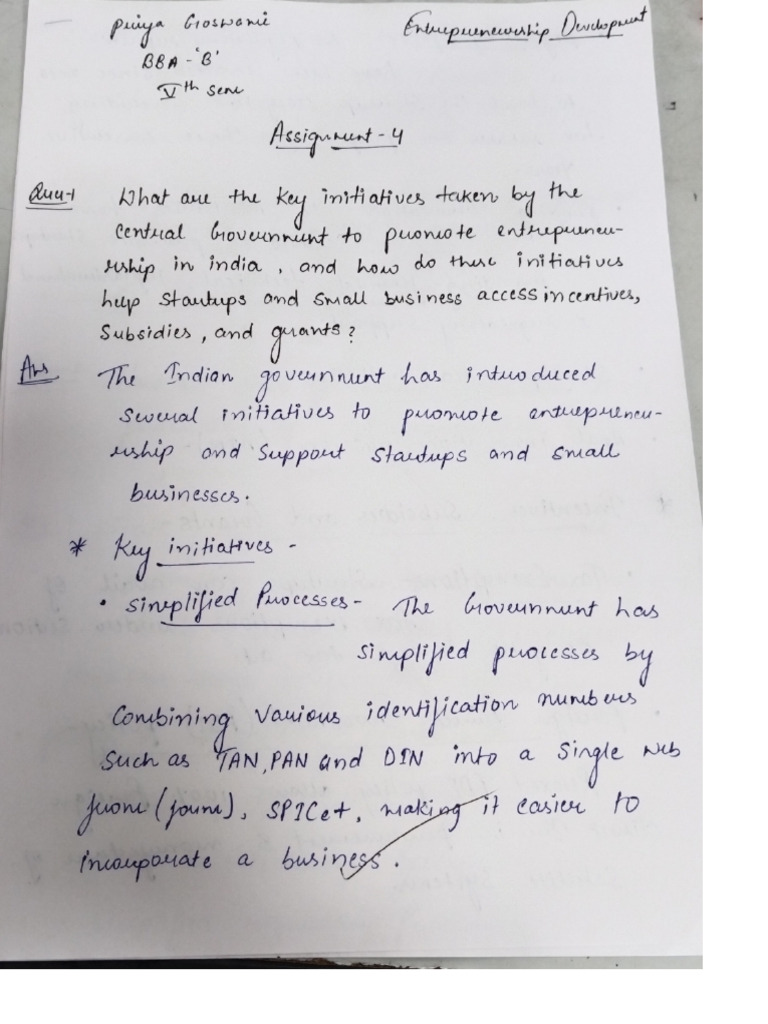 Priya Goswami
Entrepreneurship Development
BBA - 'B'
Vth Sem
Assignment - 4
Que-1 What are the Key initiatives taken by the
Central Government to promote entrepreneu-
rship in india, and how do these initiatives
help Startups and Small business access incentives,
Subsidies, and grants?
Ans The Indian government has introduced
Several initiatives to promote entrepreneu-
rship and Support Startups and Small
businesses.
* Key initiatives -
• Simplified Processes - The Government has
simplified processes by
Combining Various identification numbers
Such as TAN, PAN and DIN into a Single web
from (form), SPICe+, making it easier to
incorporate a business.